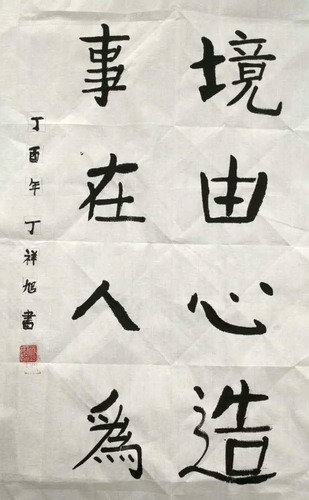 境由心造
事在人為
丁酉年丁祥旭書